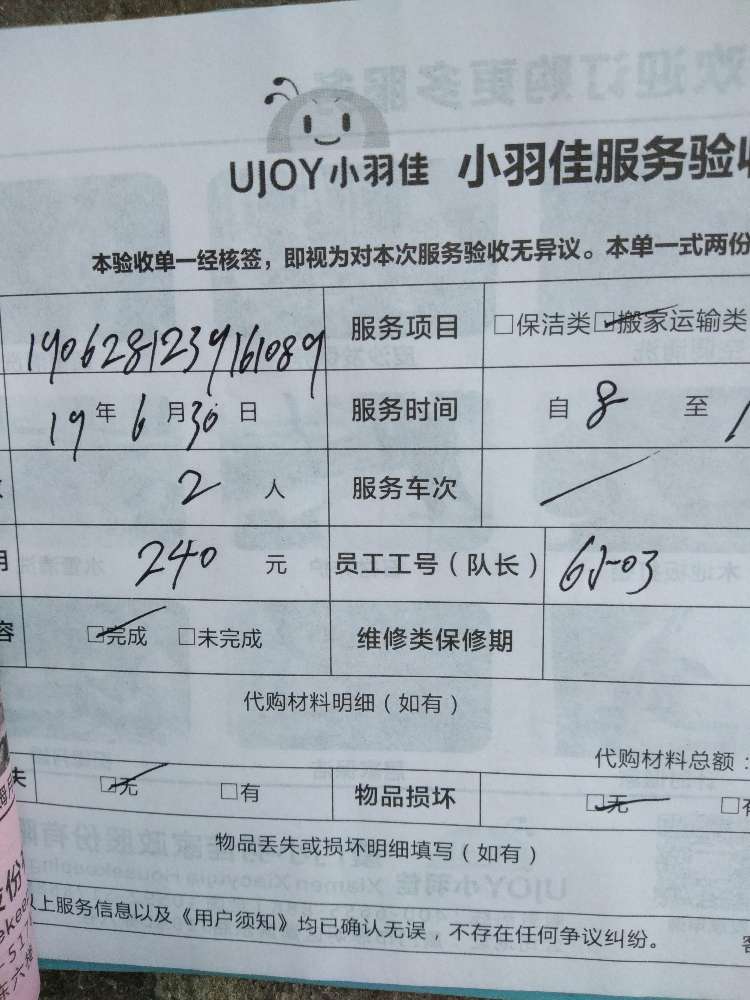 UJOY小羽佳 小羽佳服务验收
本验收单一经核签，即视为对本次服务验收无异议。本单一式两份
1906281239161089 服务项目 □保洁类 □搬家运输类
19年6月30日 服务时间 自8至1
2人 服务车次
240元 员工工号（队长） 65-03
容 □完成 □未完成 维修类保修期
代购材料明细（如有）
代购材料总额：
失 □无 □有 物品损坏 □无 □有
物品丢失或损坏明细填写（如有）
以上服务信息以及《用户须知》均已确认无误，不存在任何争议纠纷。 客